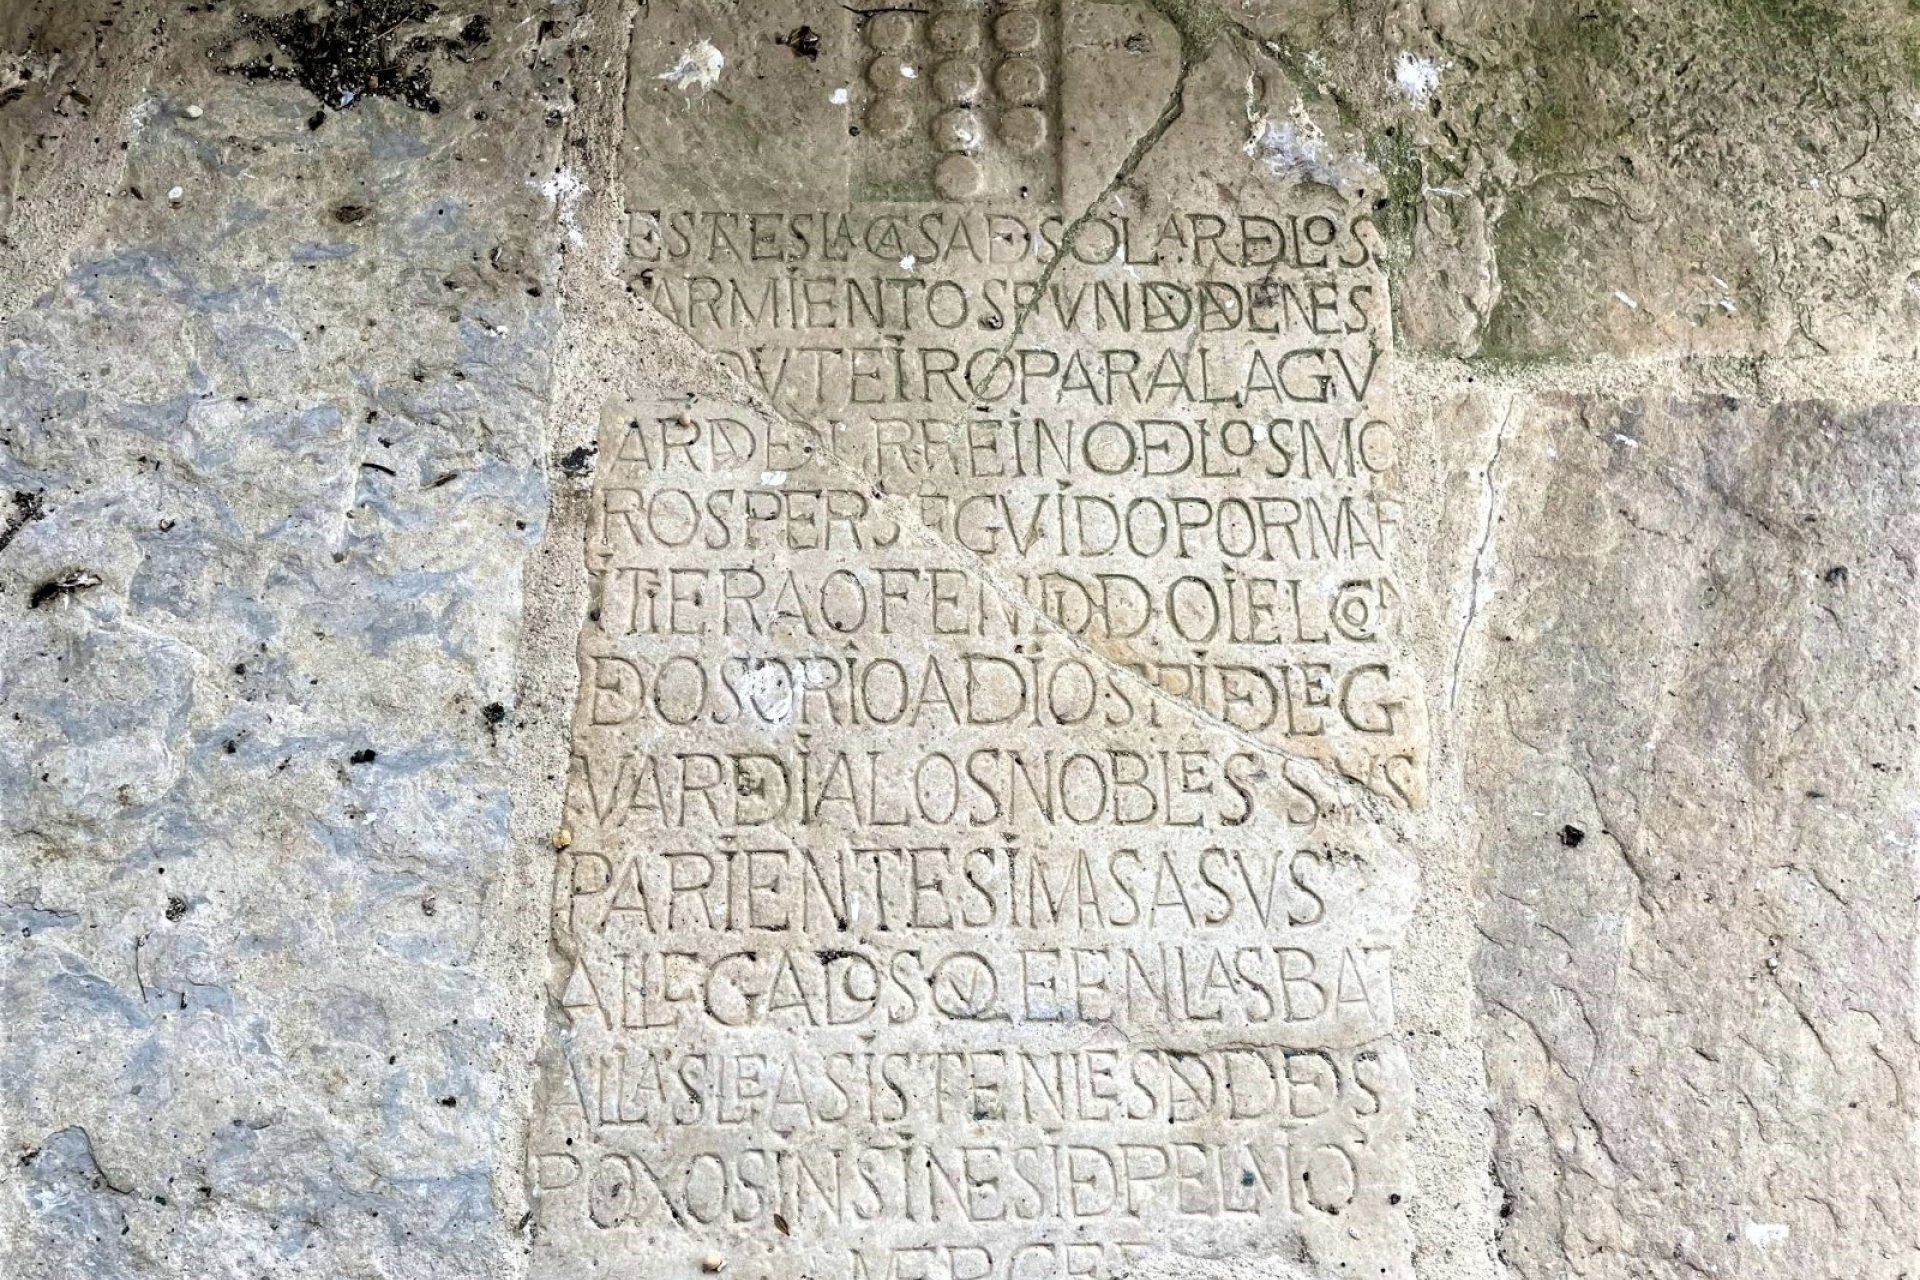 ESTA ES LA CASA DE SOLAR DE LOS
SARMIENTOS FVNDADA EN ES
OVTEIRO PARA LA GV
ARDA DEL REINO DE LOS MO
ROS PERSEGVIDO POR MAR
I TIERA OFENDIDO I EL CON
DE OSORIO A DIOS PIDE LE G
VARDE I A LOS NOBLES SVS
PARIENTES I MAS A SVS
ALLEGADOS QVE EN LAS BAT
ALLAS LE ASISTEN LES DA DE DES